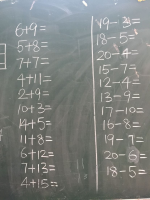 6+9=
5+8=
7+7=
4+11=
2+9=
10+3=
14+5=
11+8=
6+12=
7+13=
4+15=
19-3=
18-5=
20-4=
15-7=
12-4=
13-9=
17-10=
16-8=
19-7=
20-6=
18-5=